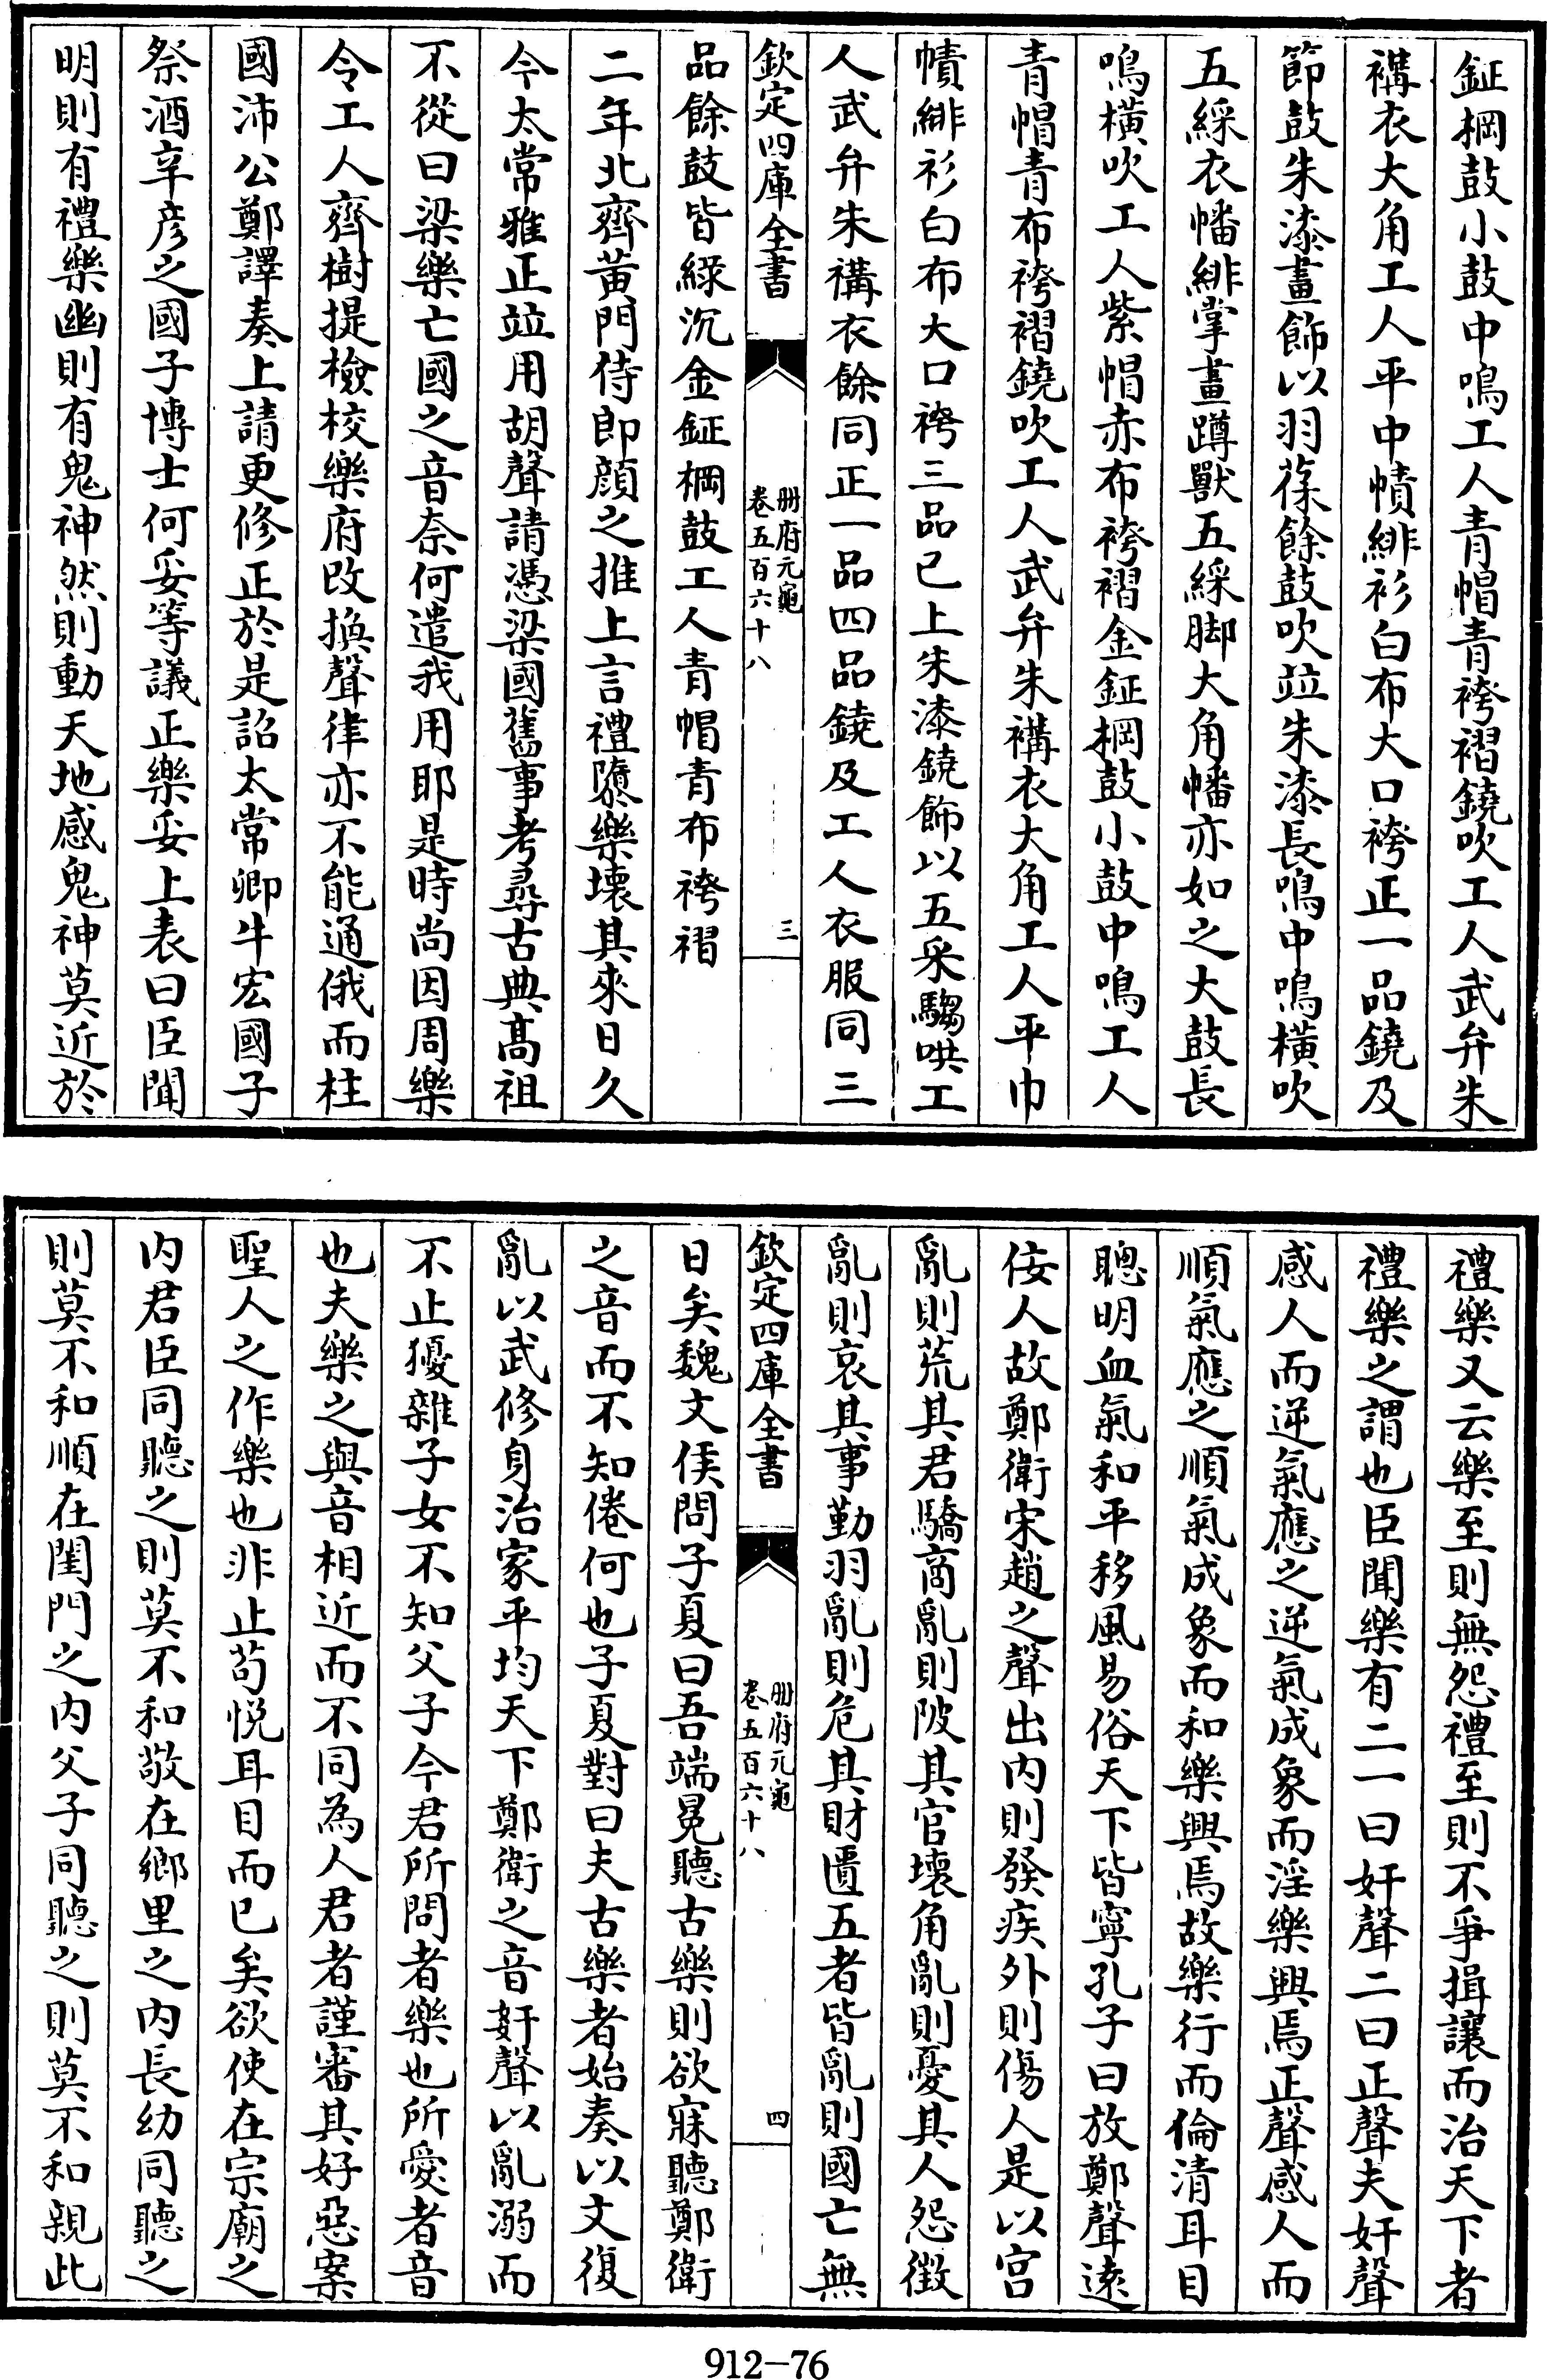 鉦棡鼓小鼓中鳴工人青帽青袴褶鐃吹工人武弁朱
褠衣大角工人平巾幘緋衫白布大口袴正一品鐃及
節鼓朱漆畫飾以羽葆餘鼓吹竝朱漆長鳴中鳴橫吹
五綵衣幡緋掌畫蹲獸五綵脚大角幡亦如之大鼓長
鳴橫吹工人紫帽赤布袴褶金鉦棡鼓小鼓中鳴工人
青帽青布袴褶鐃吹工人武弁朱褠衣大角工人平巾
幘緋衫白布大口袴三品已上朱漆鐃飾以五采騶哄工
人武弁朱褠衣餘同正一品四品鐃及工人衣服同三
欽定四庫全書
册府元龜
卷五百六十八
三
品餘鼓皆緑沉金鉦棡鼓工人青帽青布袴褶
二年北齊黄門侍郎顔之推上言禮隳樂壞其來日久
今太常雅正竝用胡聲請憑梁國舊事考尋古典髙祖
不從曰梁樂亡國之音奈何遣我用耶是時尚因周樂
令工人齊樹提檢校樂府改換聲律亦不能通俄而柱
國沛公鄭譯奏上請更修正於是詔太常卿牛宏國子
祭酒辛彦之國子博士何妥等議正樂妥上表曰臣聞
明則有禮樂幽則有鬼神然則動天地感鬼神莫近於
禮樂又云樂至則無怨禮至則不爭揖讓而治天下者
禮樂之謂也臣聞樂有二一曰奸聲二曰正聲夫奸聲
感人而逆氣應之逆氣成象而淫樂興焉正聲感人而
順氣應之順氣成象而和樂興焉故樂行而倫清耳目
聰明血氣和平移風易俗天下皆寧孔子曰放鄭聲逺
佞人故鄭衛宋趙之聲出内則發疾外則傷人是以宫
亂則荒其君驕商亂則陂其官壞角亂則憂其人怨徵
亂則哀其事勤羽亂則危其財匱五者皆亂則國亡無
欽定四庫全書
册府元龜
卷五百六十八
四
日矣魏文侯問子夏曰吾端冕聽古樂則欲寐聽鄭衛
之音而不知倦何也子夏對曰夫古樂者始奏以文復
亂以武修身治家平均天下鄭衛之音奸聲以亂溺而
不止獶雜子女不知父子今君所問者樂也所愛者音
也夫樂之與音相近而不同為人君者謹審其好惡案
聖人之作樂也非止茍悦耳目而已矣欲使在宗廟之
内君臣同聽之則莫不和敬在鄉里之内長幼同聽之
則莫不和順在閨門之内父子同聽之則莫不和親此
912-76